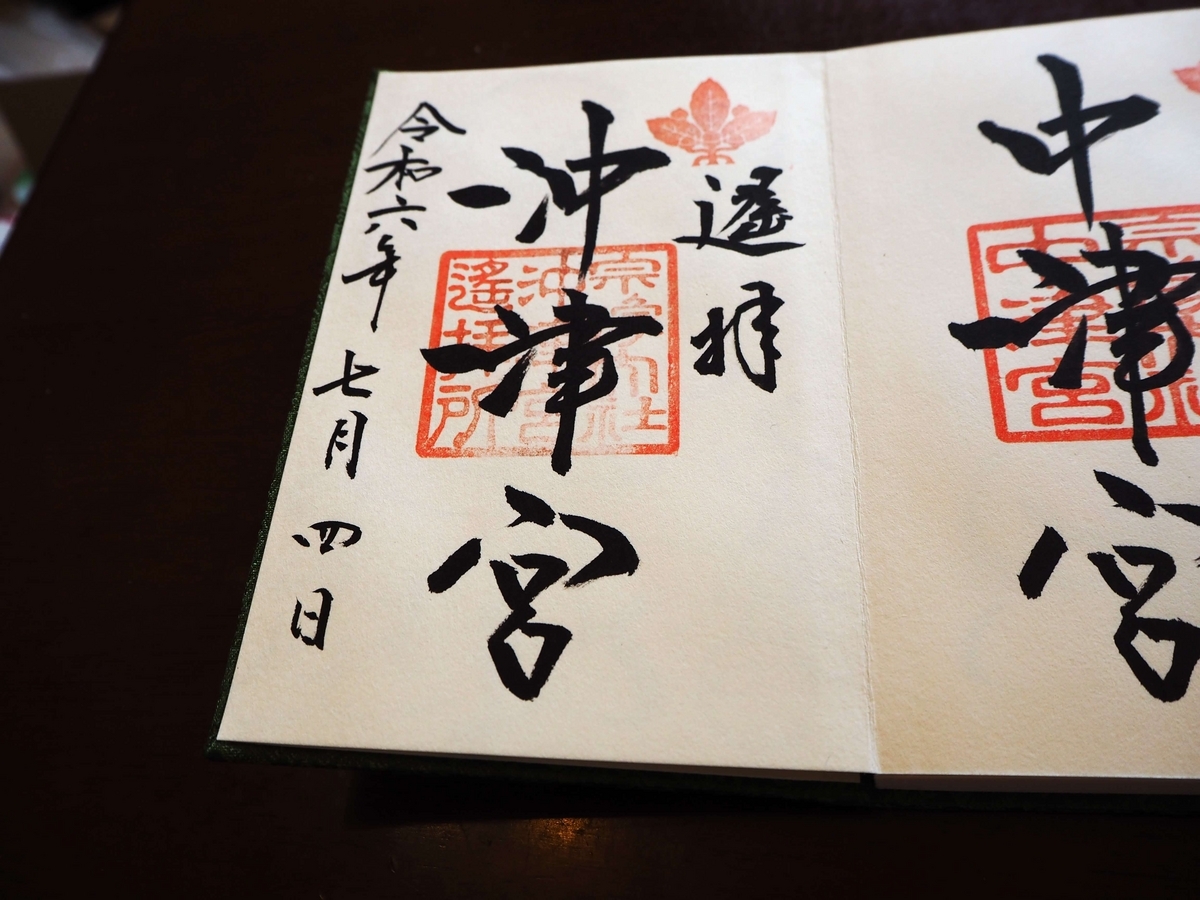 中津宮
中津宮
遙拝
沖津宮
宗像大社
沖津宮
遙拝所
令和六年七月四日